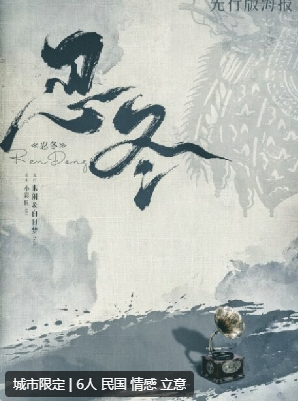 先行版海报
忍冬
≪忍冬≫
Ren Dong
城市限定 | 6人 民国 情感 立意